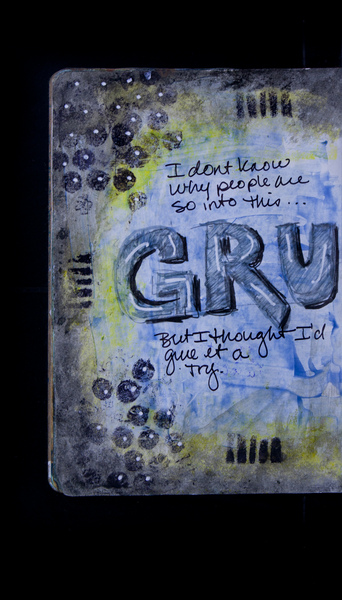 I dont know
why people are
so into this...
GRU
But I thought I'd
give it a
Try.